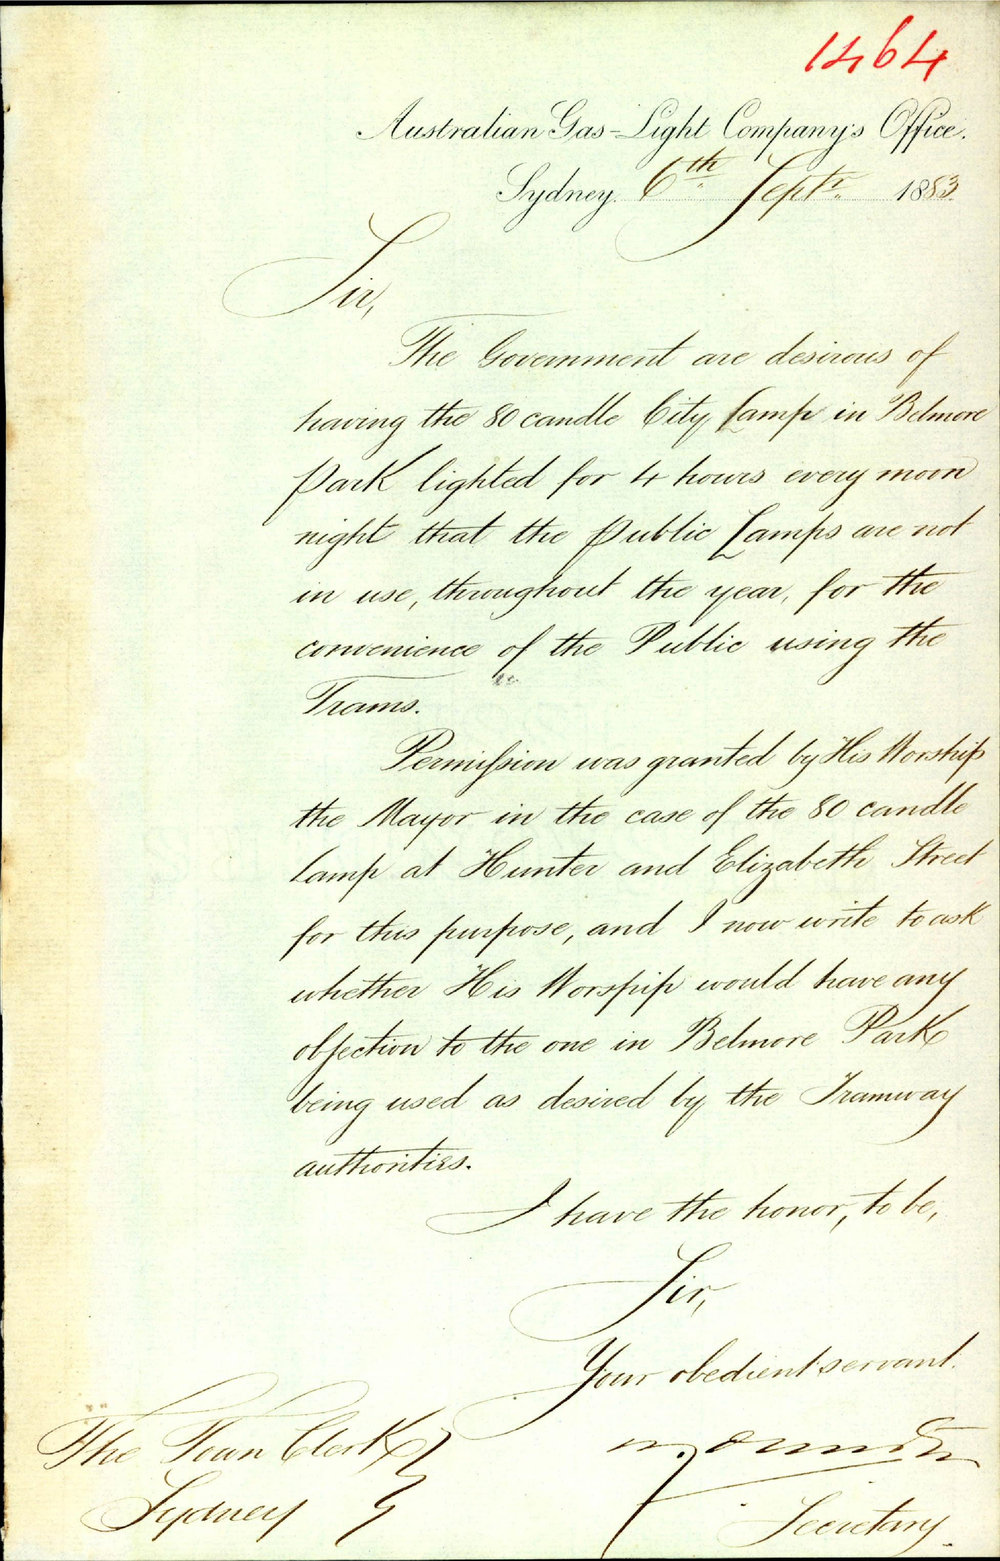 1464
Australian Gas-Light Company's Office.
Sydney. 6th Septr. 1883.
Sir,
The Government are desirous of
having the 80 candle City Lamp in Belmore
Park lighted for 4 hours every moon
night that the Public Lamps are not
in use, throughout the year, for the
convenience of the Public using the
Trams.
Permission was granted by His Worship
the Mayor in the case of the 80 candle
Lamp at Hunter and Elizabeth Street
for this purpose, and I now write to ask
whether His Worship would have any
objection to the one in Belmore Park
being used as desired by the Tramway
authorities.
I have the honor, to be,
Sir,
Your obedient servant.
The Town Clerk
Sydney
Secretary.